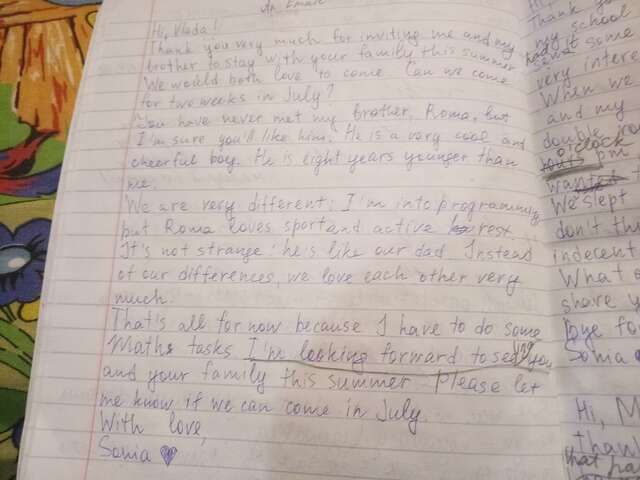 An Email
Hi, Vlada!
Thank you very much for inviting me and my
brother to stay with your family this summer
We would both love to come Can we come
for two weeks in July?
You have never met my brother, Roma, but
I'm sure you'll like him. He is a very cool and
cheerful boy. He is eight years younger than
me.
We are very different: I'm into programming
but Roma loves sport and active rest.
It's not strange: he's like our dad. Instead
of our differences, we love each other very
much.
That's all for now because I have to do some
Maths tasks I'm looking forward to seeing you
and your family this summer. Please let
me know if we can come in July.
With love,
Sonia
Hi,
Thank you
my school
some
very intere
When we
and my
double
o'clock
pm
wanted
We slept
don't thi
indecent
What
share y
Bye fo
Sonia
Hi, M
Thank
that pa